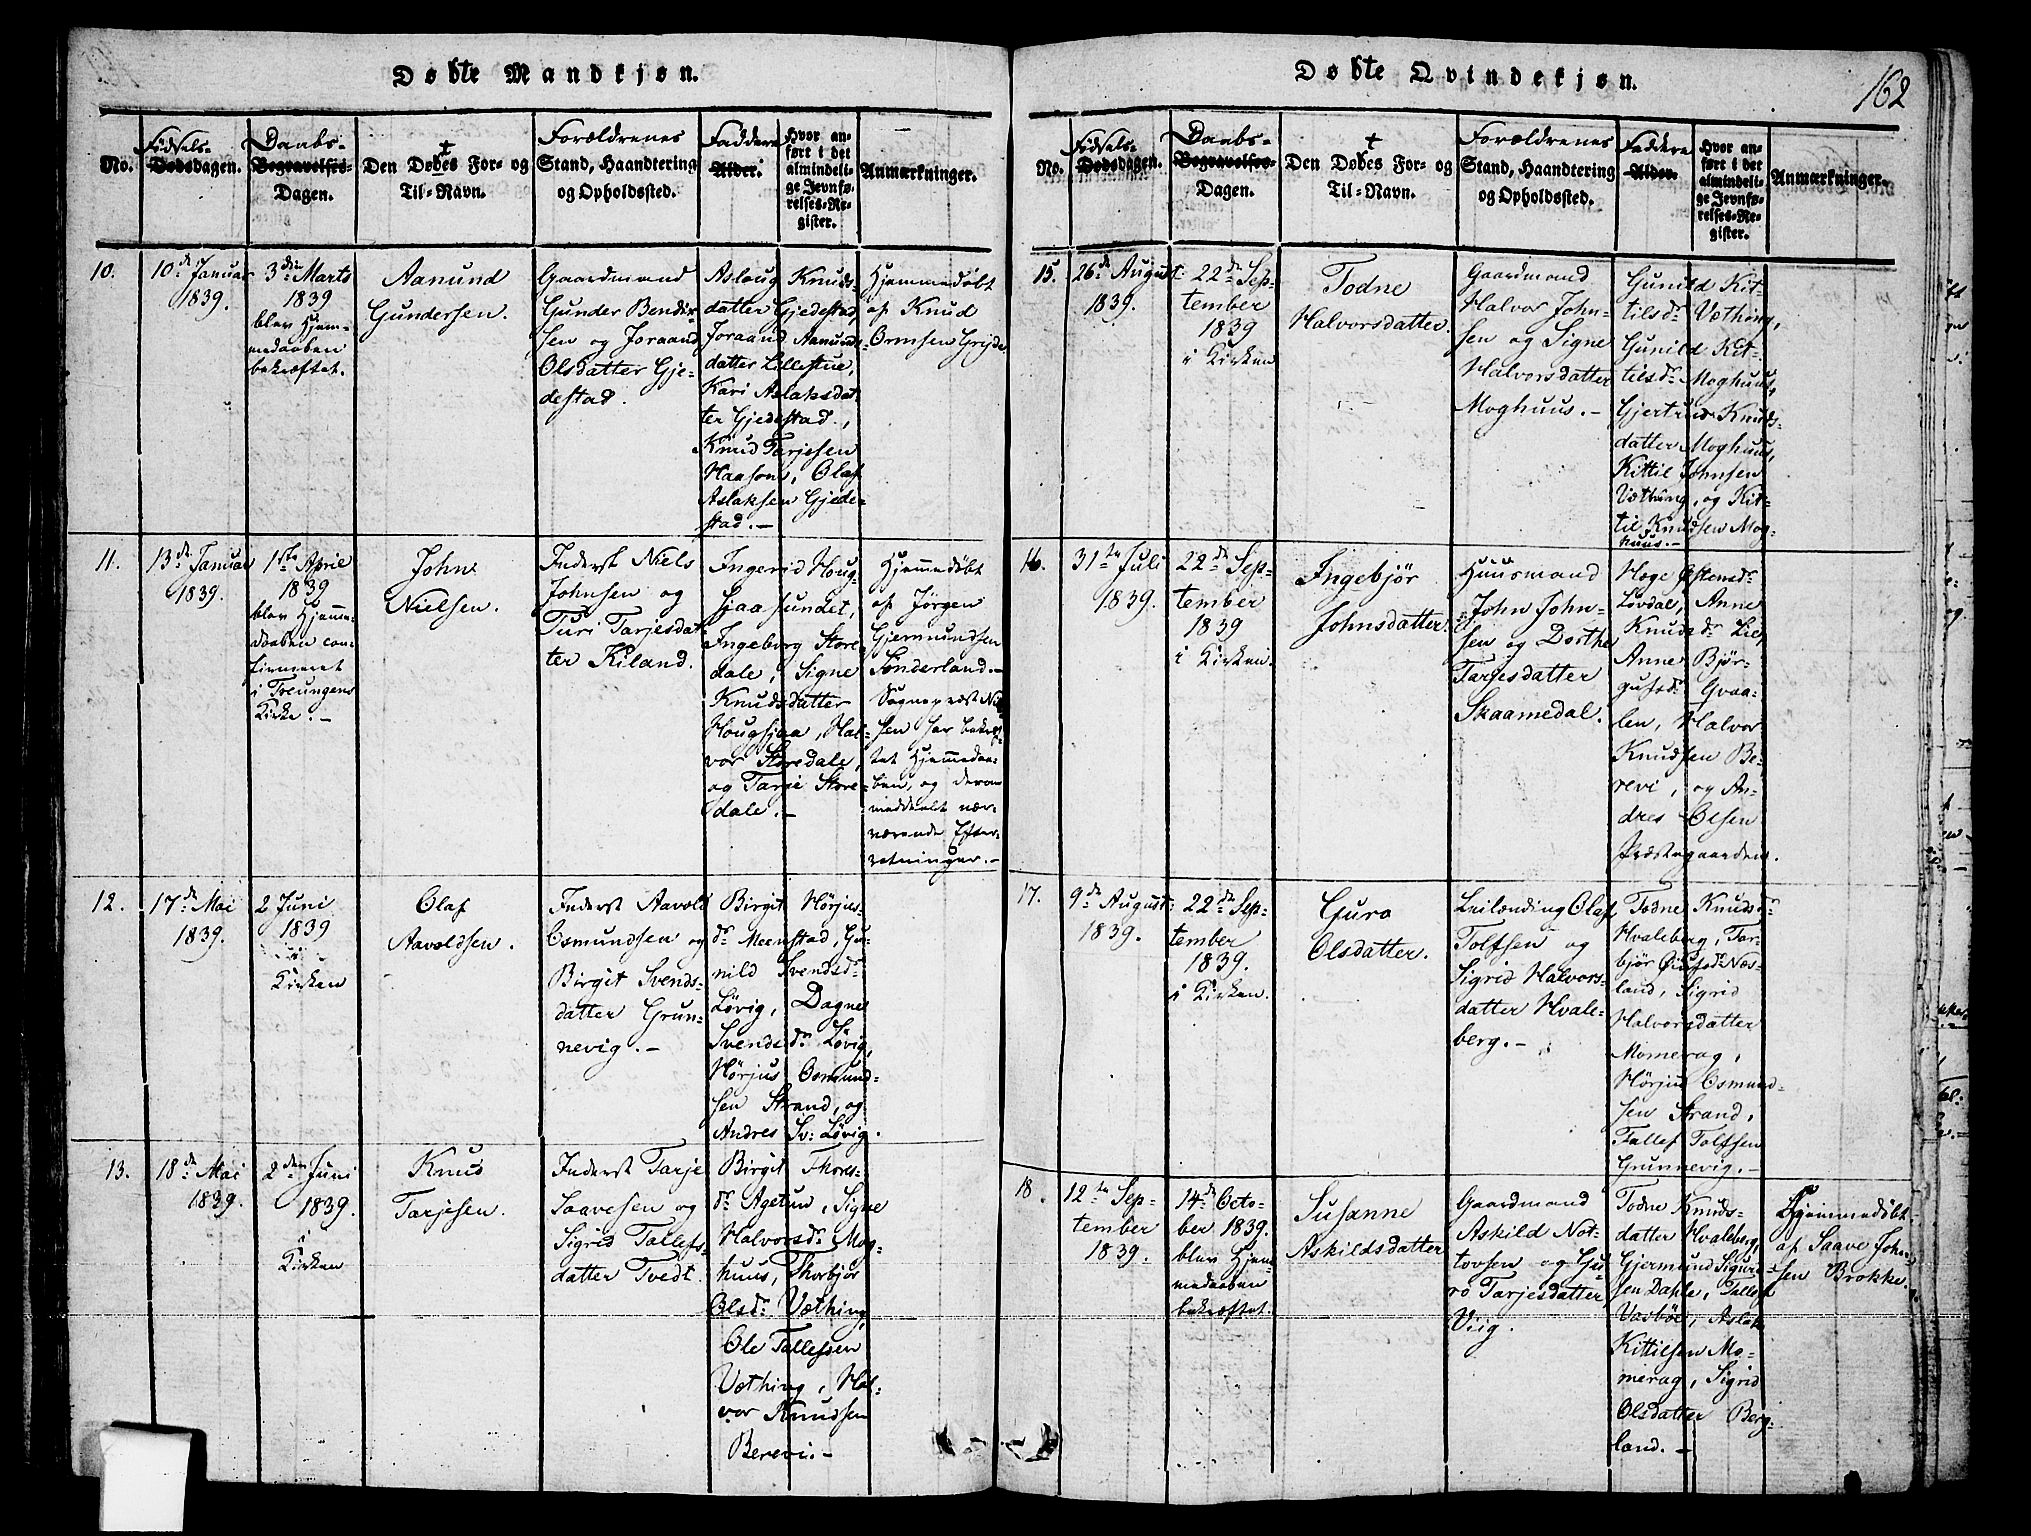 Døbte Mandkjøn.
No.
Fødsels-
Dødsdagen.
Daabs-
Begravelses-
Dagen.
Den Døbes For- og
Til-Navn.
Forældrenes
Stand, Haandtering
og Opholdssted.
Faddere
Alder.
Hvor an-
ført i det
almindeli-
ge Jevnfø-
relses-Re-
gister.
Anmærkninger.
10.
10de Januar
1839.
3die Marts
1839
blev Hjem-
medaaben
bekræftet.
Aanund
Gundersen.
Gaardmand
Gunder Bendix-
sen og Joraand
Olsdatter Gje-
destad.
Aslaug Knuds-
datter Gjedestad,
Joraand Aanunds-
datter Lillestue,
Kari Aslaksdat-
ter Gjedestad,
Knud Tarjesen
Haasom, Olaf
Aslaksen Gjede-
stad.-
Hjemmedøbt
af Knud
Ormsen
11.
13de Januar
1839.
1ste April
1839
blev Hjemme-
daaben con-
firmeret
i Treungens
Kirke.-
John
Nielsen.
Inderst Niels
Johnsen og
Turi Tarjesdat-
ter Kiland.
Ingerid Houg-
sjaasundet,
Ingeborg Store-
dale, Signe
Knudsdatter
Hougsjaa, Hal-
vor Storedale,
og Tarje Store-
dale.-
Hjemmedøbt
af Jørgen
Gjermundsen
Sønderland.-
Sognepræst Niel-
sen har bekræf-
tet Hjemmedaa-
ben, og derom
meddeelt nær-
værende Efter-
retninger.-
12.
17de Mai
1839.
2 Juni
1839
i
Kirken
Olaf
Aavoldsen.
Inderst Aavold
Osmundsen og
Birgit Svends-
datter Grun-
nevig.-
Birgit Hørjus-
dr Meenstad, Gu-
nild Svendsdr
Løvig, Dagne
Svendsdr Løvig,
Hørjus Osmund-
sen Strand, og
Andres Sv: Løvig.
13.
18de Mai
1839.
2den Juni
1839.
i
Kirken
Knud
Tarjesen.
Inderst Tarje
Saavesen og
Sigrid Tallefs-
datter Tvedt.
Birgit Thores-
dr Agetun, Signe
Halvorsdr Mog-
huus, Thorbjør
Olsdr Væthing,
Ole Tallefsen
Væthing, Hal-
vor Knudsen
Berevi.-
Døbte Qvindekjøn.
162
No.
Fødsels-
Dødsdagen.
Daabs-
Begravelses-
Dagen.
Den Døbes For- og
Til-Navn.
Forældrenes
Stand, Haandtering
og Opholdssted.
Faddere
Alder.
Hvor an-
ført i det
almindeli-
ge Jevnfø-
relses-Re-
gister.
Anmærkninger.
15.
26de August
1839.
22de Sep-
tember
1839
i Kirken
Todne
Halvorsdatter.
Gaardmand
Halvor John-
sen og Signe
Halvorsdatter
Moghuus.-
Gunild Kit-
tilsdr Væthing,
Gunild Kit-
tilsdr Moghuus,
Gjertrud Knuds-
datter Moghuus,
Kittil Johnsen
Væthing, og Kit-
til Knudsen Mog-
huus.-
16.
31te Juli
1839.
22de Sep-
tember
1839
i Kirken.
Ingebjør
Johnsdatter.
Huusmand
John John-
sen og Dorthe
Tarjesdatter
Skaamedal.
Høge Østensdr
Løvdal, Anne
Knudsdr Lie,
Anne Bjør-
gufsdr Qvaa-
len, Halvor
Knudsen Be-
revi, og An-
dres Olsen
Præstegaarden.
17.
9de August
1839.
22de Sep-
tember
1839.
i Kirken.
Guro
Olsdatter.
Leilænding Olaf
Tolfsen og
Sigrid Halvors-
datter Hvale-
berg.-
Todne Knudsdr
Hvaleberg, Tor-
bjør Øiufsdr Næs-
land, Sigrid
Halvorsdatter
Momerag,
Hørjus Osmund-
sen Strand,
Tallef Tolfsen
Grunnevig.-
18.
12te Sep-
tember
1839.
14de Octo-
ber 1839.
blev Hjem-
medaaben
bekræftet.
Susanne
Askildsdatter
Gaardmand
Askild Not-
tovsen og Gu-
ro Tarjesdatter
Viig.
Todne Knuds-
datter Hvaleberg,
Gjermund Sigurd-
sen Dahle, Tallef
Vasbøe, Aslak
Kittilsen Mo-
merag, Sigrid
Olsdatter Berg-
land.-
Hjemmedøbt
af Saave John-
sen Brokke.